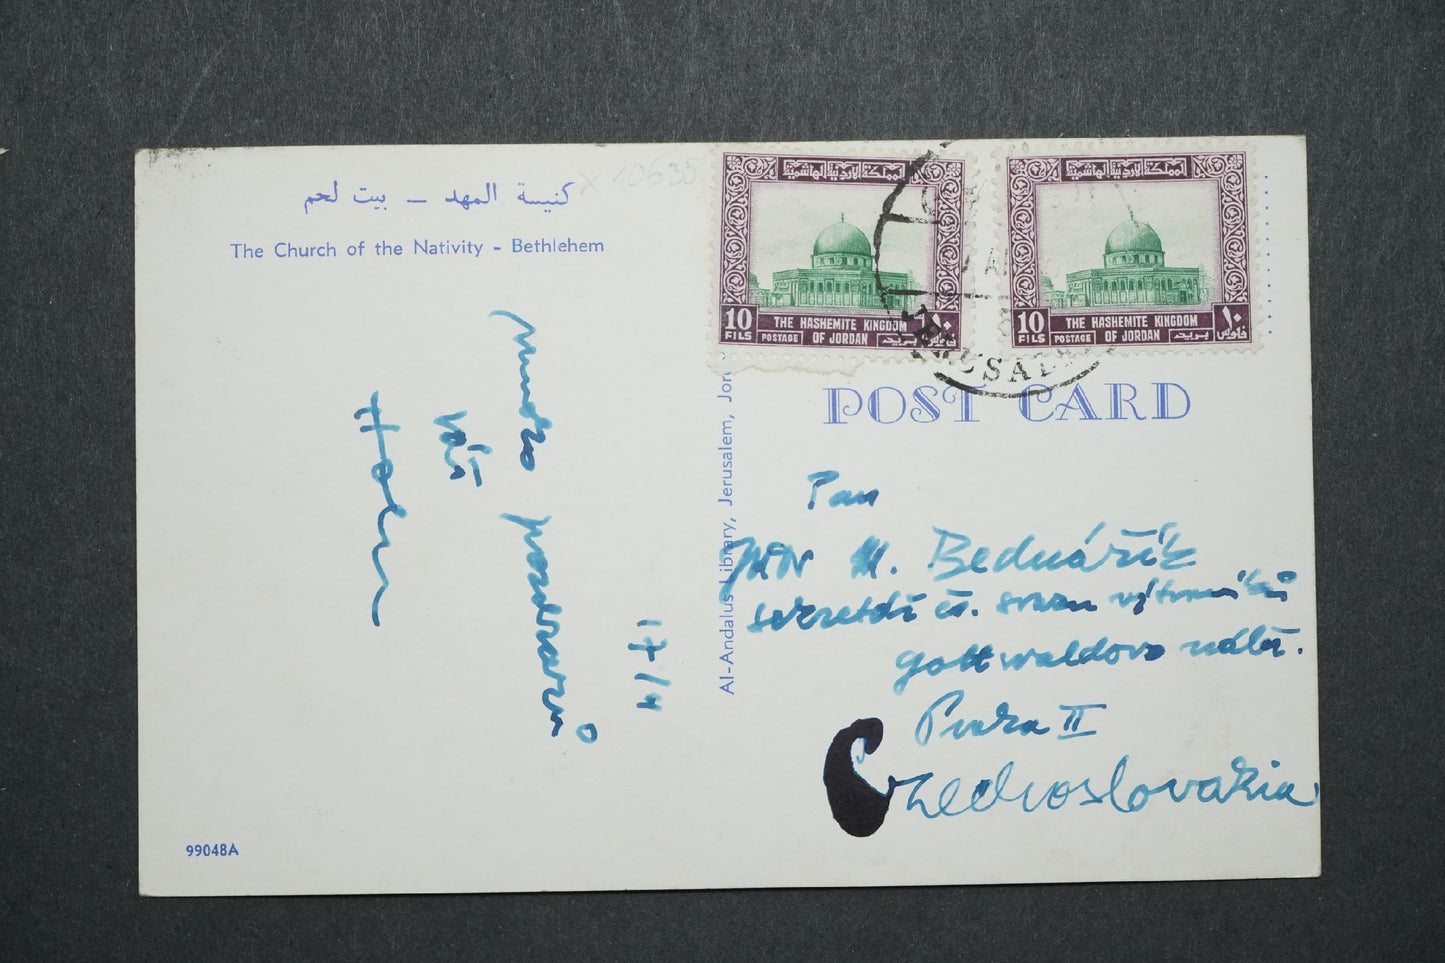 كنيسة المهد – بيت لحم
x 10635
The Church of the Nativity - Bethlehem
mnoho pozdravů
Váš
17/4
99048A
Al-Andalus Library, Jerusalem, Jor
المملكة الاردنية الهاشمية
10 FILS
POSTAGE
THE HASHEMITE KINGDOM
OF JORDAN
بريد
١٠ فلوس
المملكة الاردنية الهاشمية
10 FILS
POSTAGE
THE HASHEMITE KINGDOM
OF JORDAN
بريد
١٠ فلوس
JERUSALEM
POST CARD
Pan
M. Bednářík
čs. svazu
Gottwaldovo nábř.
Praha II
Czechoslovakia